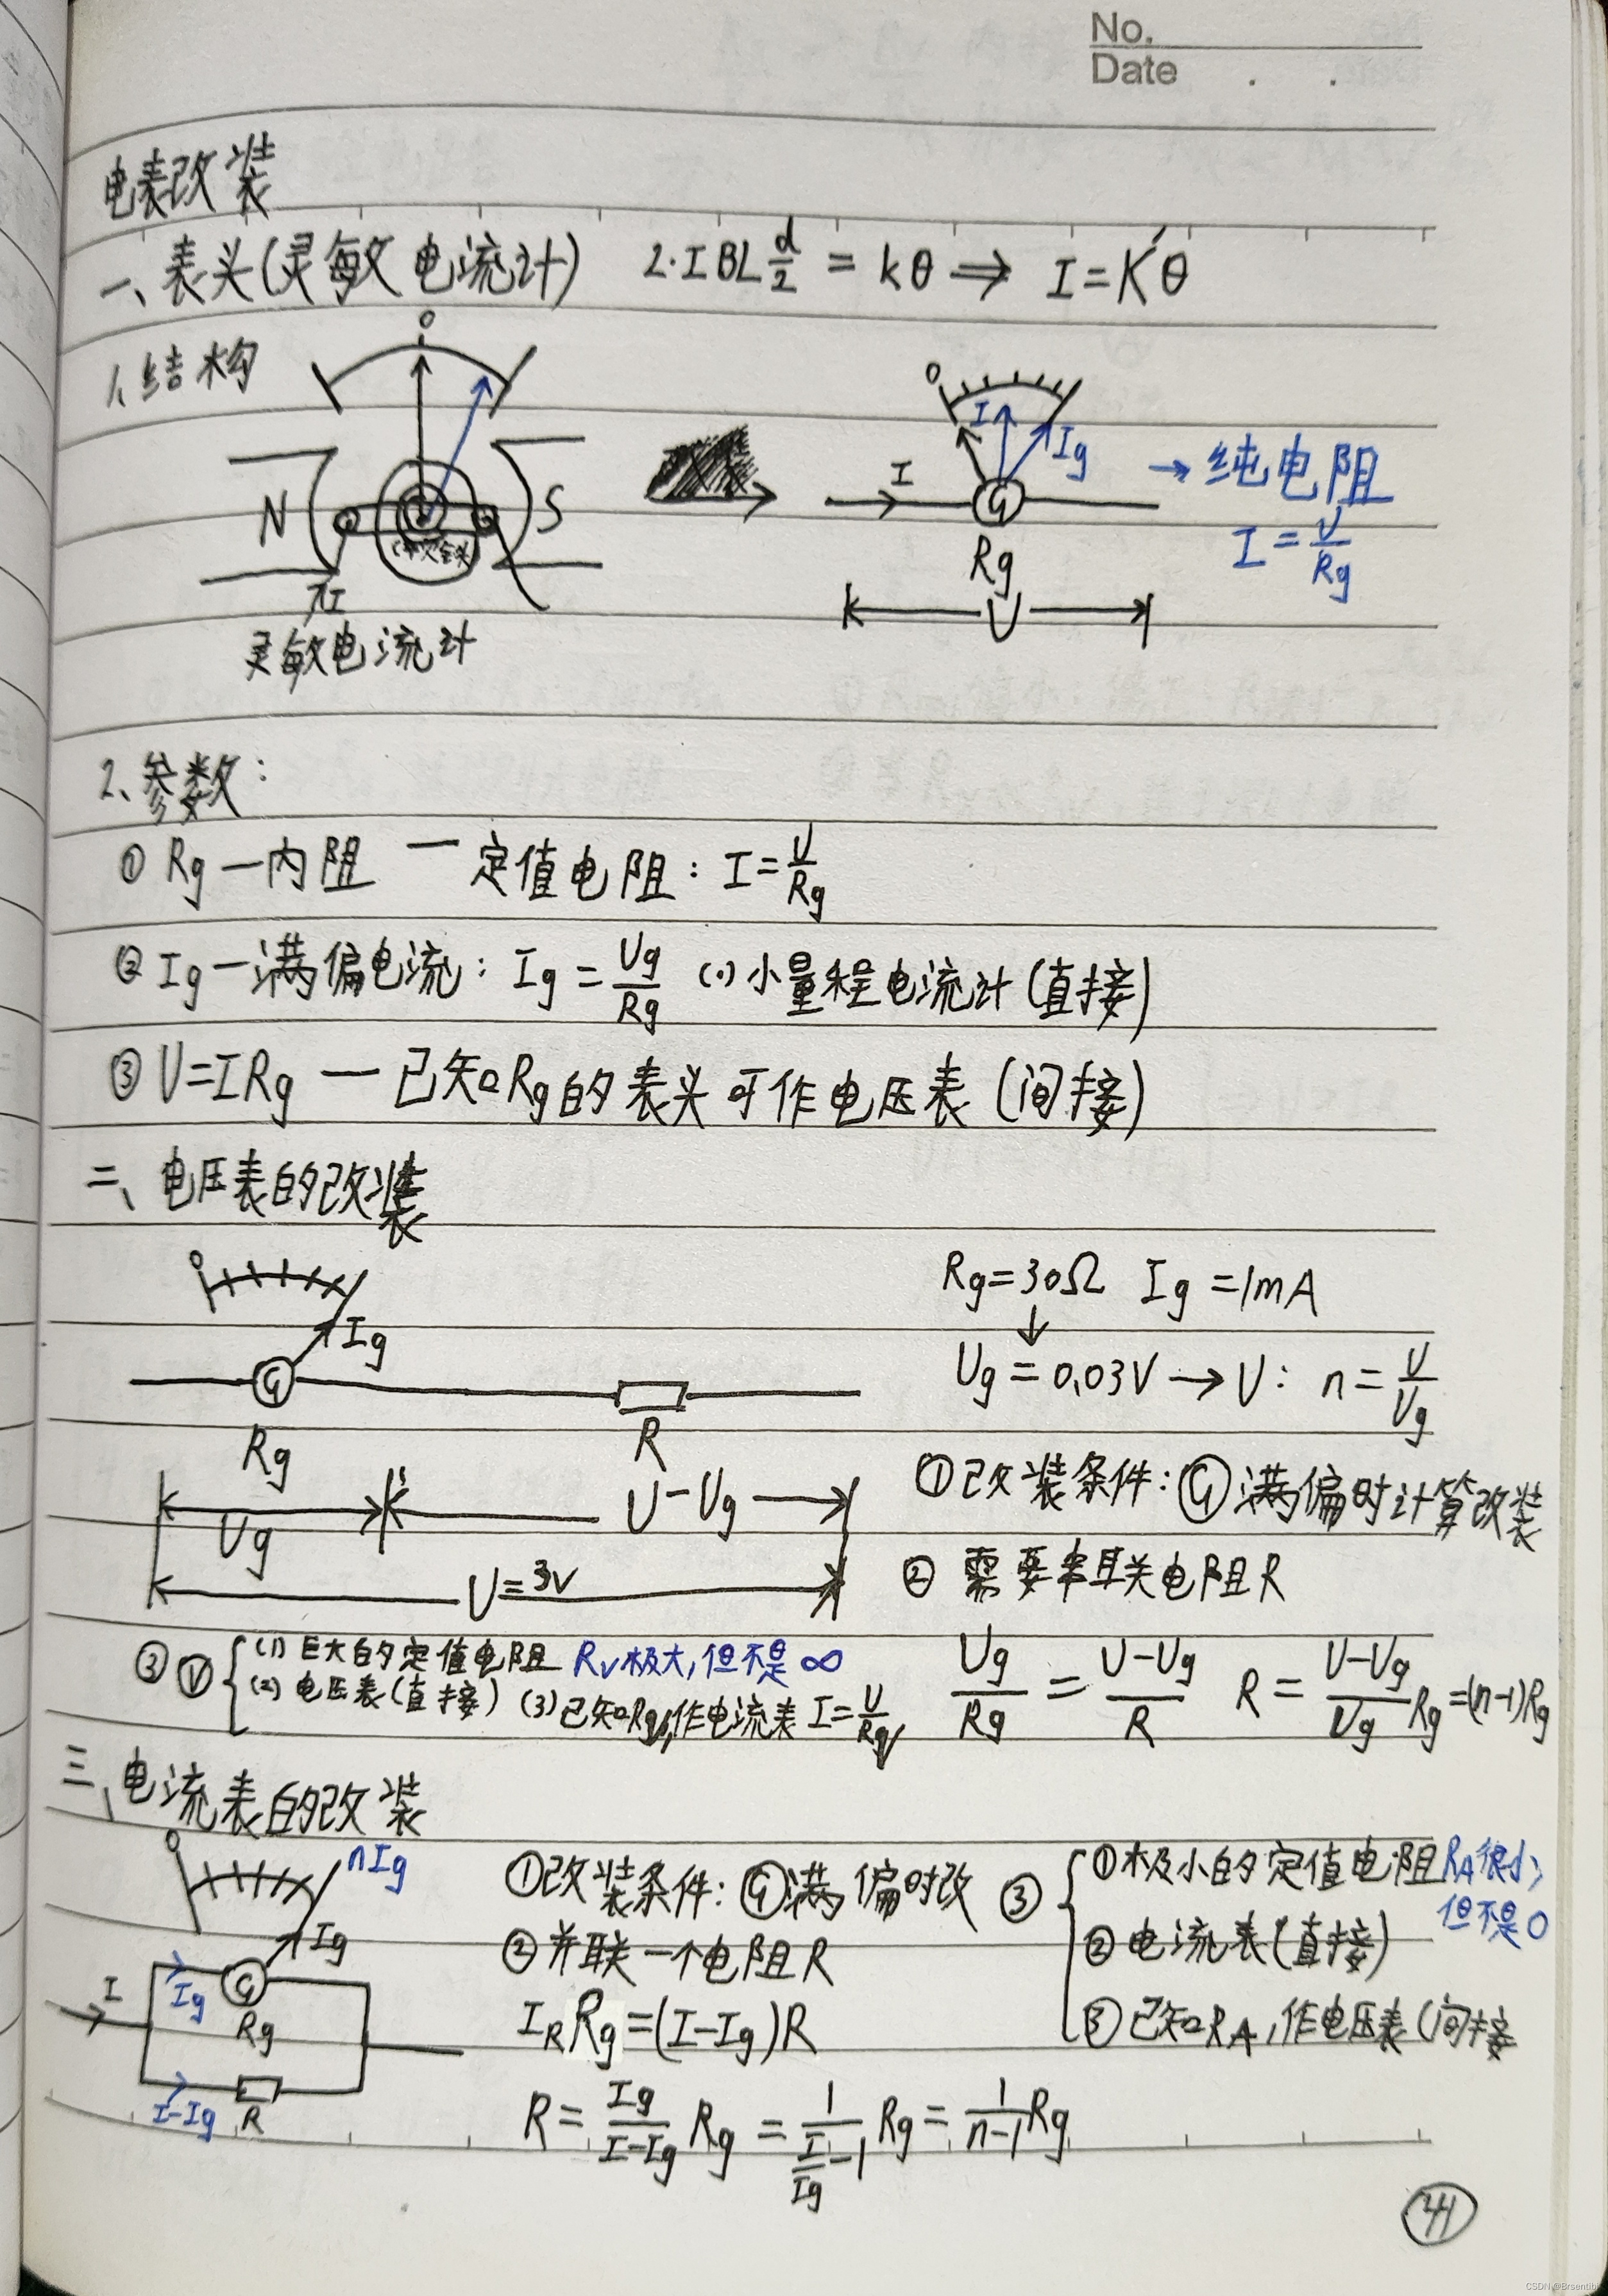 No.
Date
电表改装
一、表头(灵敏电流计) 2·IBL d/2 = kθ ⇒ I=K'θ
1、结构
0
N S
I
灵敏电流计
0
I Ig
I G
Rg
U
→纯电阻
I = U/Rg
2、参数:
① Rg—内阻 — 定值电阻: I=U/Rg
② Ig—满偏电流: Ig=Ug/Rg (1)小量程电流计(直接)
③ U=IRg — 已知Rg的表头可作电压表(间接)
二、电压表的改装
0
Ig
G
Rg R
Ug U-Ug
U=3V
Rg=30Ω Ig=1mA
↓
Ug=0.03V → U: n=U/Ug
①改装条件: G满偏时计算改装
② 需要串联电阻R
③ V { (1) 巨大的定值电阻 Rv极大,但不是∞
(2) 电压表(直接) (3)已知Rg,作电流表 I=U/Rg
Ug/Rg = (U-Ug)/R R = (U-Ug)/Ug Rg=(n-1)Rg
三、电流表的改装
0 nIg
Ig
I Ig G
Rg
I-Ig R
①改装条件: G满偏时改
②并联一个电阻R
IRRg=(I-Ig)R
R = Ig/(I-Ig) Rg = 1/(I/Ig -1) Rg = 1/(n-1) Rg
③ { ①极小的定值电阻RA很小,
但不是0
②电流表(直接)
③已知RA,作电压表(间接
44
CSDN @Brsentibi